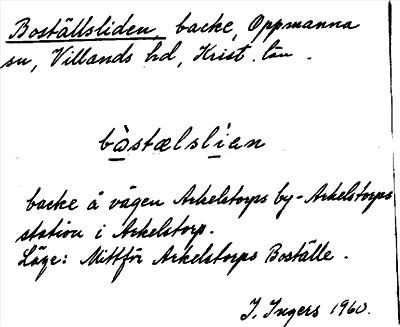 Boställsliden, backe, Oppmanna
sn, Villands hd, Krist. län.
bòstælslian
backe å vägen Arkelstorps by-Arkelstorps
station i Arkelstorp.
Läge: Mittför Arkelstorps Boställe.
I. Ingers 1960.